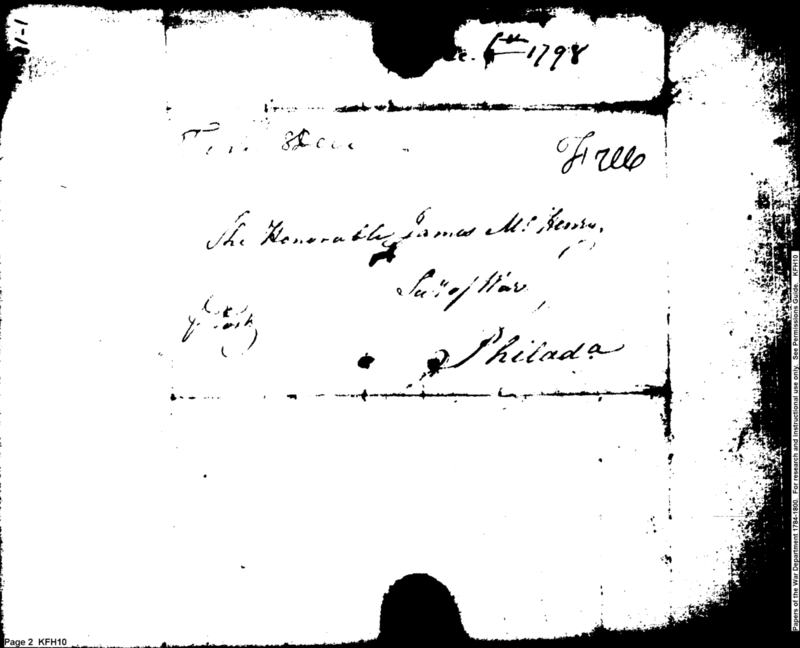 6th 1798
Free
The Honorable James McHenry,
Secy of War
Philada
Page 2 KFH10
Papers of the War Department 1784-1800. For research and instructional use only. See Permissions Guide. KFH10